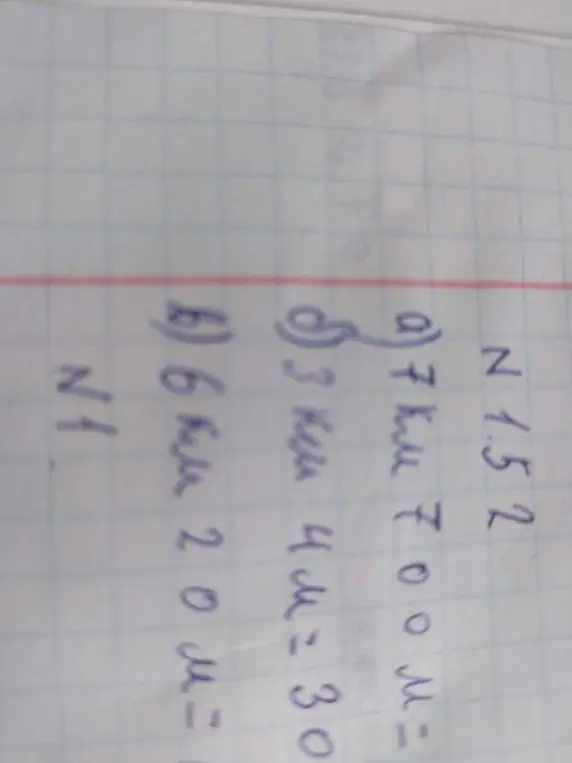 N 1.52
а) 7 км 700 м =
б) 3 км 4 м = 30
в) 6 км 20 м =
N 1